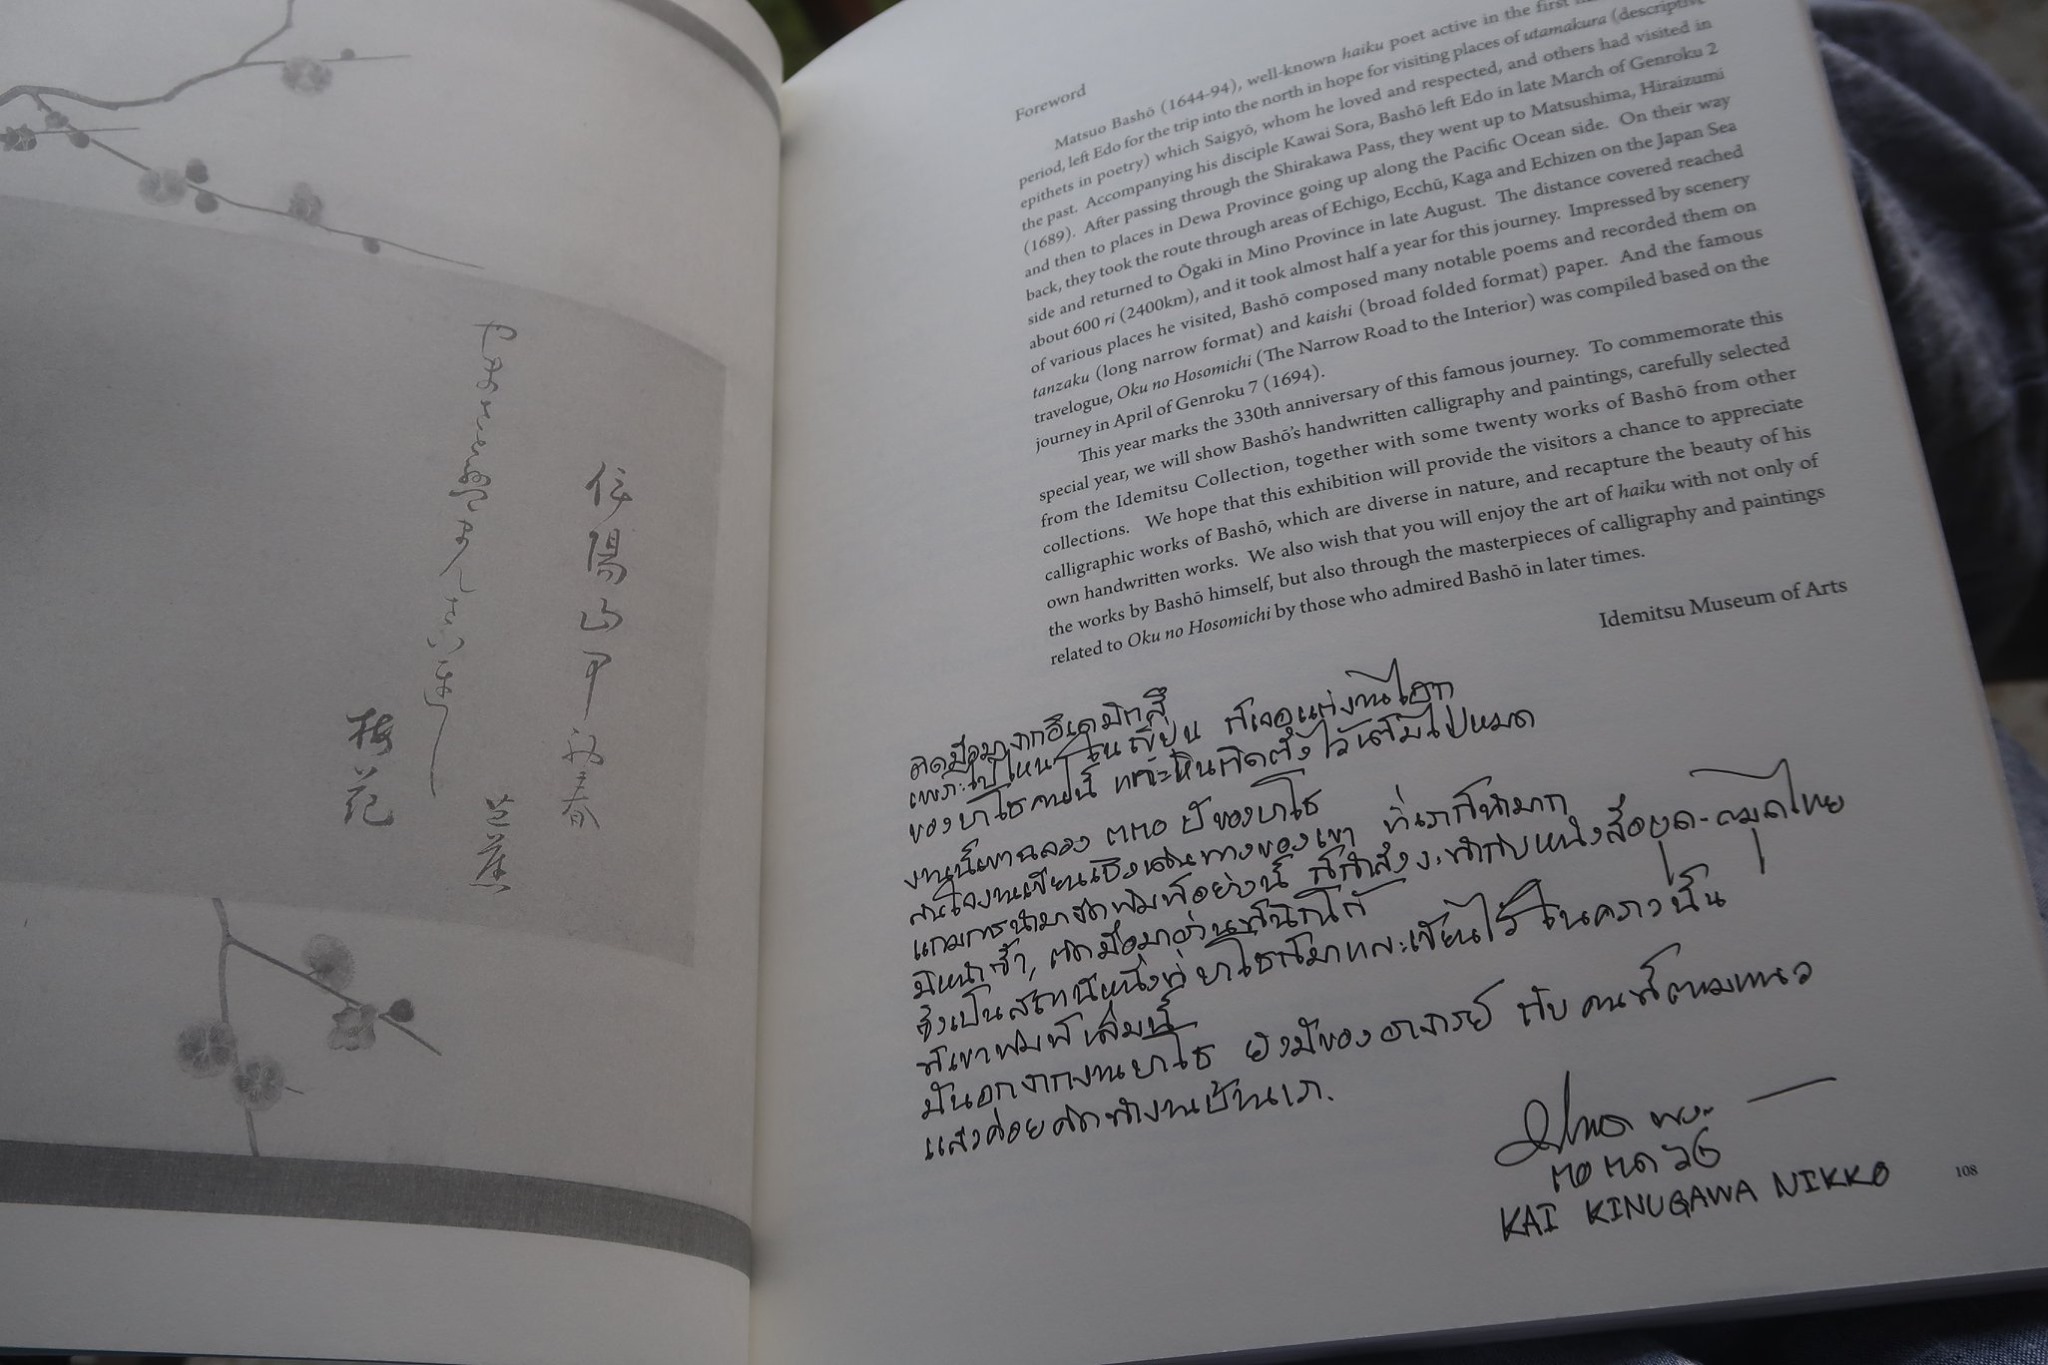 伊陽山中初春
芭蕉
梅花
Foreword
Matsuo Bashō (1644-94), well-known haiku poet active in the first
period, left Edo for the trip into the north in hope for visiting places of utamakura (descriptive
epithets in poetry) which Saigyō, whom he loved and respected, and others had visited in
the past. Accompanying his disciple Kawai Sora, Bashō left Edo in late March of Genroku 2
(1689). After passing through the Shirakawa Pass, they went up to Matsushima, Hiraizumi
and then to places in Dewa Province going up along the Pacific Ocean side. On their way
back, they took the route through areas of Echigo, Ecchū, Kaga and Echizen on the Japan Sea
side and returned to Ōgaki in Mino Province in late August. The distance covered reached
about 600 ri (2400km), and it took almost half a year for this journey. Impressed by scenery
of various places he visited, Bashō composed many notable poems and recorded them on
tanzaku (long narrow format) and kaishi (broad folded format) paper. And the famous
travelogue, Oku no Hosomichi (The Narrow Road to the Interior) was compiled based on the
journey in April of Genroku 7 (1694).
This year marks the 330th anniversary of this famous journey. To commemorate this
special year, we will show Bashō's handwritten calligraphy and paintings, carefully selected
from the Idemitsu Collection, together with some twenty works of Bashō from other
collections. We hope that this exhibition will provide the visitors a chance to appreciate
calligraphic works of Bashō, which are diverse in nature, and recapture the beauty of his
own handwritten works. We also wish that you will enjoy the art of haiku with not only of
the works by Bashō himself, but also through the masterpieces of calligraphy and paintings
related to Oku no Hosomichi by those who admired Bashō in later times.
Idemitsu Museum of Arts
ติดมือมาจากอิเดมิทสึ
เพราะไปไหนในญี่ปุ่น ก็เจอแต่งานไฮกุ
ของบาโชคนนี้ แกะหินติดตั้งไว้เต็มไปหมด
งานนี้เขาฉลอง ๓๓๐ ปีของบาโช
สนใจงานเขียนเชิงเดินทางของเขา ที่เราก็นำมาก
แถมการนำมาจัดพิมพ์อย่างนี้ ก็กำลังจะทำกับหนังสือบุด-สมุดไทย
มีหน้าซ้ำ, ติดมือมาอ่านที่นิกโก้
ซึ่งเป็นสถานีหนึ่งที่บาโชก็มาและเขียนไว้ในคราวนั้น
ที่เขาพิมพ์เล่มนี้
มีนอกจากงานบาโช ยังมีของอาจารย์ กับ คนที่ตามแนว
แล้วค่อยคิดทำงานบ้านเรา.
KAI KINUGAWA NIKKO
108